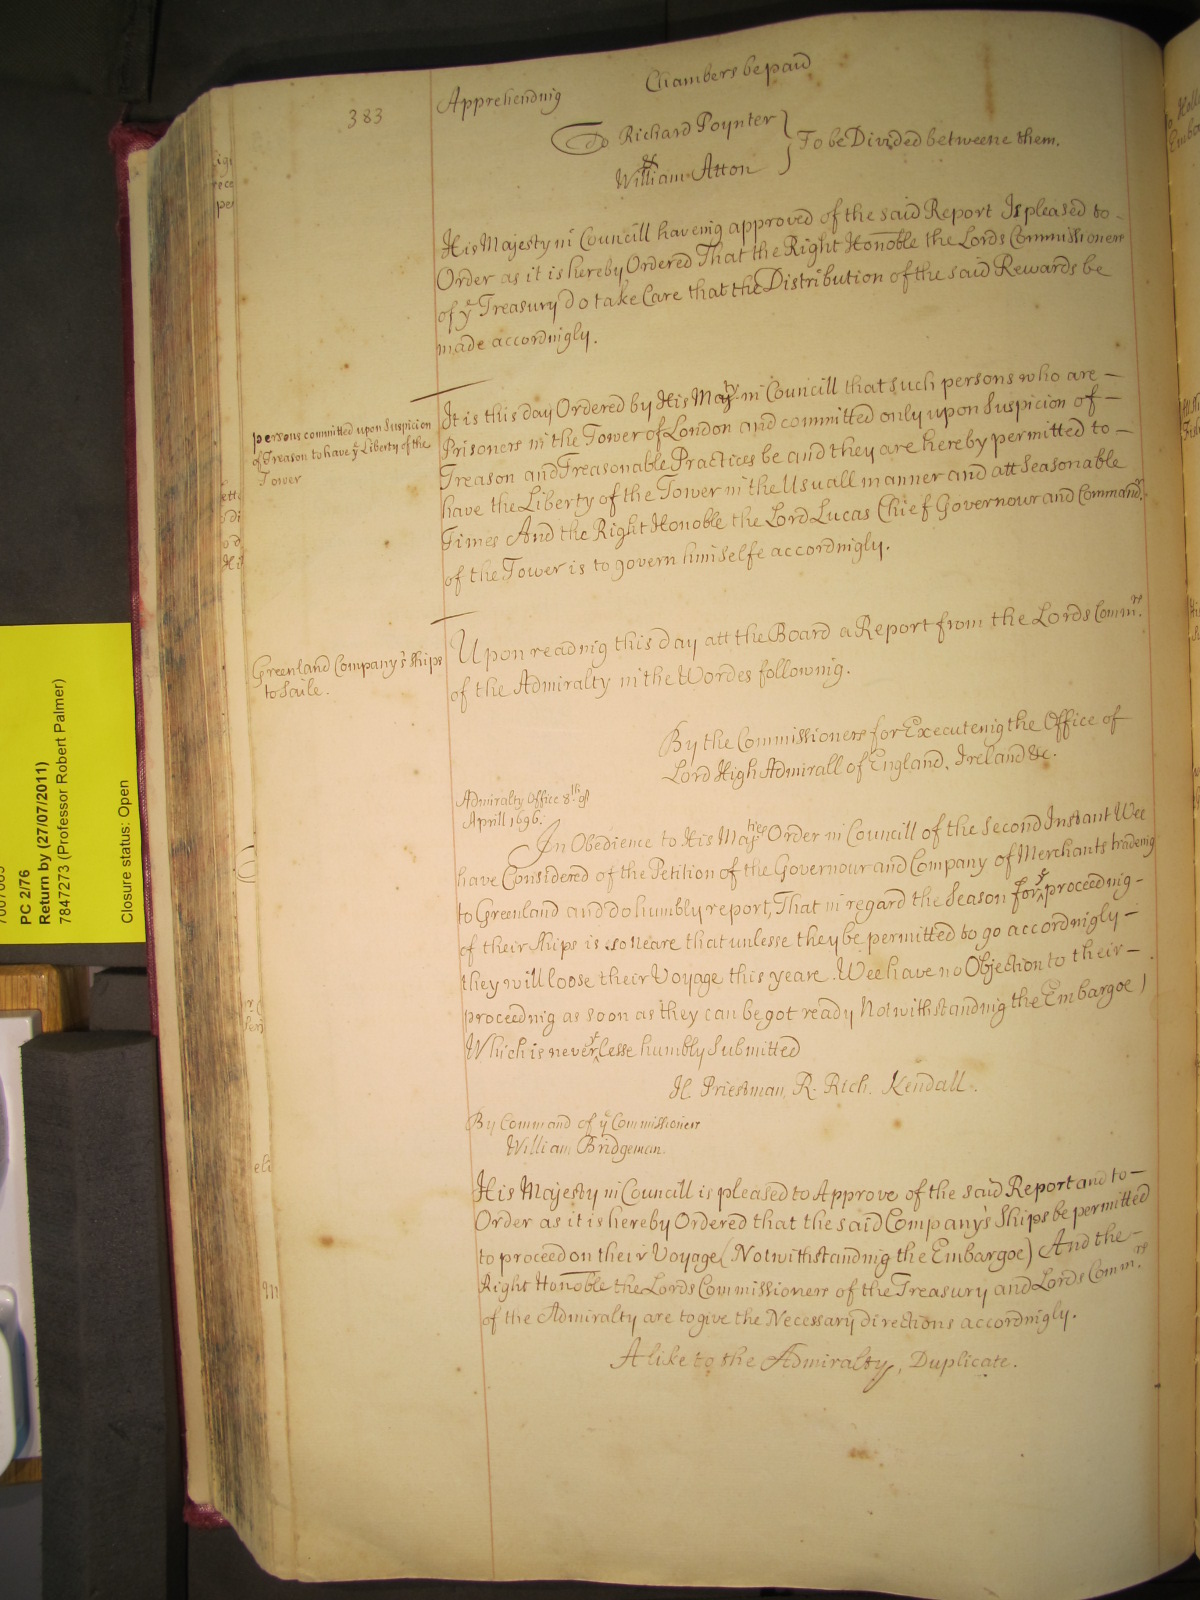 383
Apprehending Chambers be paid
To Richard Poynter
William Atton
To be Divided betweene them.
His Majesty in Councill having approved of the said Report Is pleased to -
Order as it is hereby Ordered That the Right Honoble the Lords Commissioners
of ye Treasury do take Care that the Distribution of the said Rewards be
made accordingly.
persons committed upon Suspicion
of Treason to have ye Liberty of the
Tower
It is this day Ordered by His Maty in Councill that such persons who are -
Prisoners in the Tower of London and committed only upon Suspicion of -
Treason and Treasonable Practices be and they are hereby permitted to -
have the Liberty of the Tower in the Usuall manner and att Seasonable
Times And the Right Honoble the Lord Lucas Chief Governour and Commandr
of the Tower is to govern himselfe accordingly.
Greenland Company's Ships
to Saile.
Upon reading this day att the Board a Report from the Lords Commrs
of the Admiralty in the Wordes following.
By the Commissioners for Executeing the Office of
Lord High Admirall of England, Ireland &c.
Admiralty Office 8th of
Aprill 1696.
In Obedience to His Maties Order in Councill of the Second Instant Wee
have Considered of the Petition of the Governour and Company of Merchants tradeing
to Greenland and do humbly report, That in regard the Season for ye proceeding -
of their Ships is so neare that unlesse they be permitted to go accordingly -
they will loose their Voyage this yeare. Wee have no Objection to their -
proceeding as soon as they can be got ready Notwithstanding the Embargoe
Which is neverthelesse humbly Submitted
H. Priestman, R. Rich. Kendall.
By Command of ye Commissioners
William Bridgeman.
His Majesty in Councill is pleased to Approve of the said Report and to -
Order as it is hereby Ordered that the said Company's Ships be permitted
to proceed on their Voyage (Notwithstanding the Embargoe) And the -
Right Honoble the Lords Commissioners of the Treasury and Lords Commrs
of the Admiralty are to give the Necessary directions accordingly.
A like to the Admiralty, Duplicate.
PC 2/76
Return by (27/07/2011)
7847273 (Professor Robert Palmer)
Closure status: Open